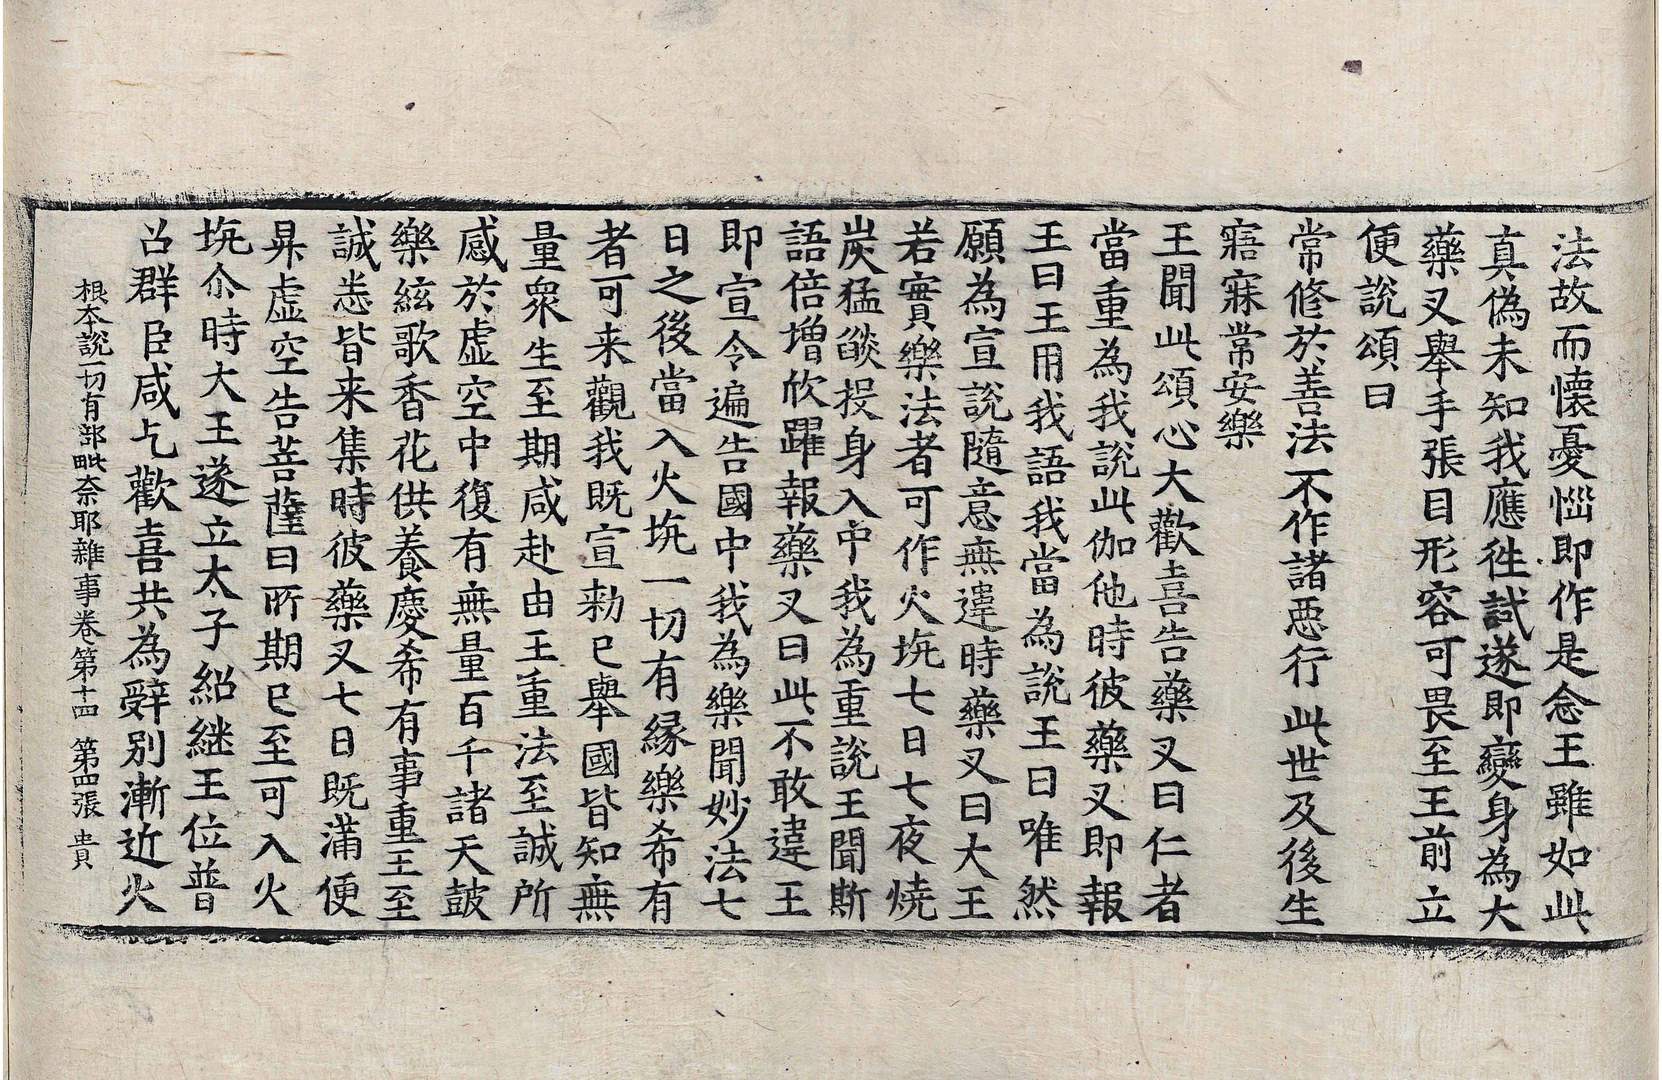 法故而懷憂惱即作是念王雖如此
真偽未知我應往試遂即變身為大
藥叉舉手張目形容可畏至王前立
便說頌曰
常修於善法不作諸惡行此世及後生
寤寐常安樂
王聞此頌心大歡喜告藥叉曰仁者
當重為我說此伽他時彼藥叉即報
王曰王用我語我當為說王曰唯然
願為宣說隨意無違時藥叉曰大王
若實樂法者可作火坑七日七夜燒
炭猛燄投身入中我為重說王聞斯
語倍增欣躍報藥叉曰此不敢違王
即宣令遍告國中我為樂聞妙法七
日之後當入火坑一切有緣樂希有
者可来觀我既宣勑已舉國皆知無
量眾生至期咸赴由王重法至誠所
感於虛空中復有無量百千諸天鼓
樂絃歌香花供養慶希有事重王至
誠悉皆来集時彼藥叉七日既滿便
昇虛空告菩薩曰所期已至可入火
坑尒時大王遂立太子紹継王位普
召群臣咸乞歡喜共為辭別漸近火
根本說一切有部毗奈耶雜事卷第十四 第四張 貴